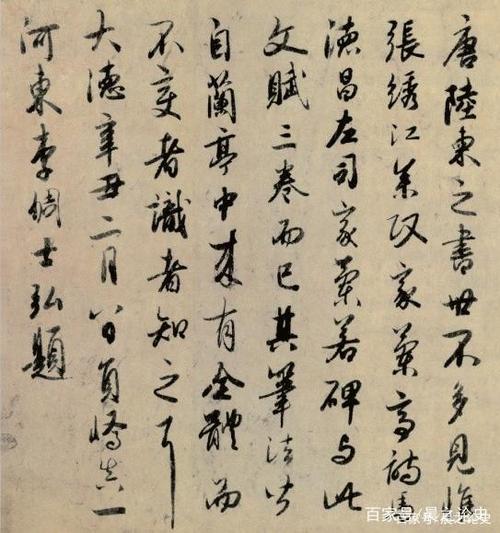 唐陸柬之書世不多見惟
張綉江叅政家蘭亭詩焦
德昌左司家蘭若碑与此
文賦三卷而已其筆法皆
自蘭亭中来有全體而
不变者識者知之耳
大德辛丑二月八日員嶠真一
河東李倜士弘題
百家号/晨之论史